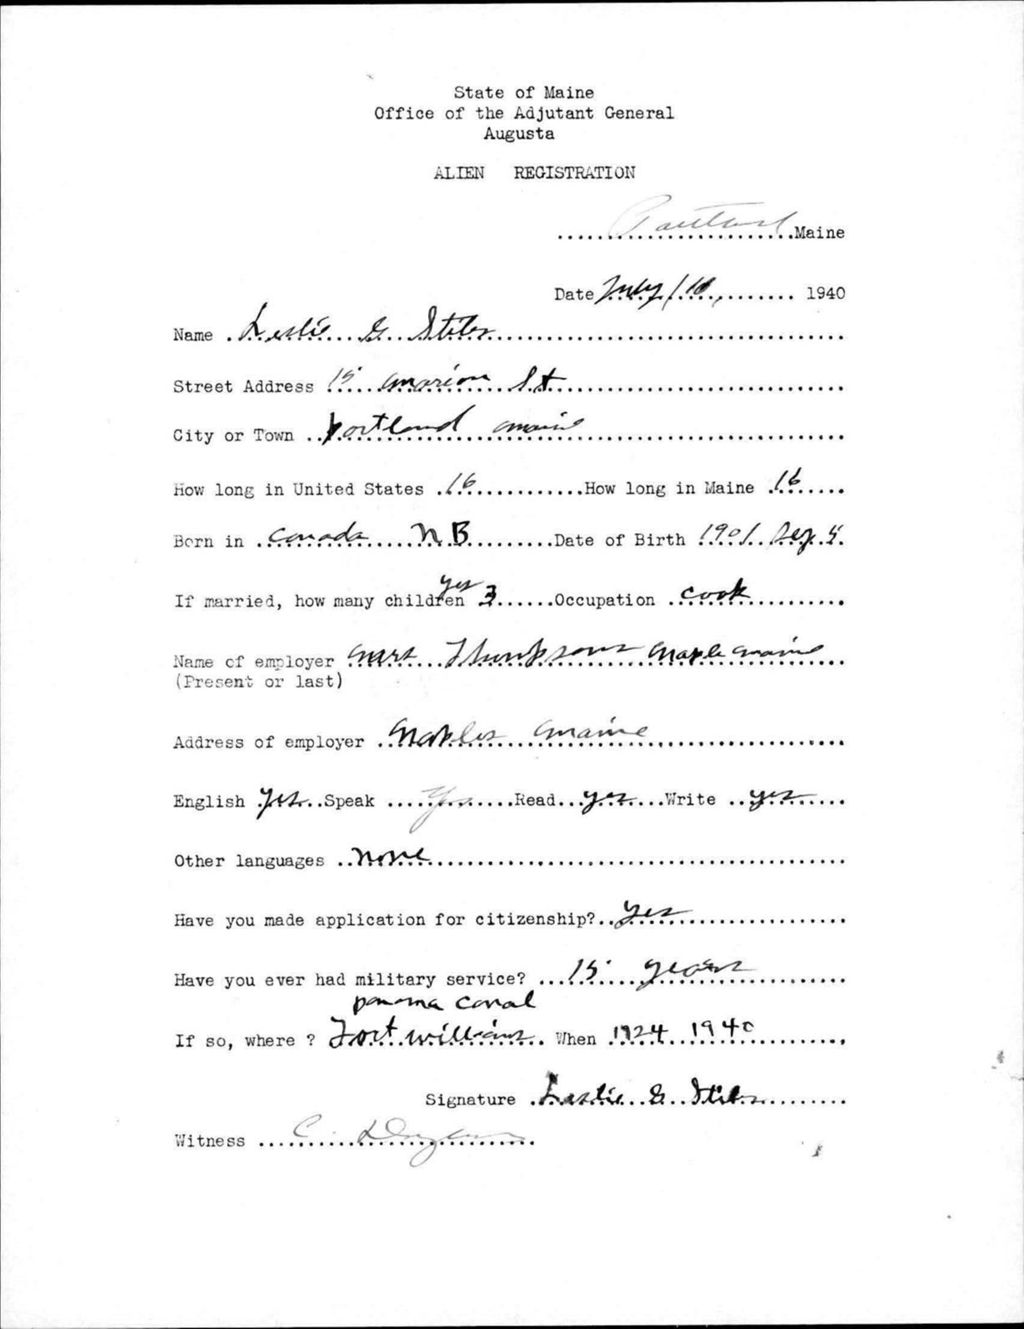 State of Maine
Office of the Adjutant General
Augusta
ALIEN REGISTRATION
Portland Maine
Date July 10, 1940
Name Leslie G. Stiles
Street Address 15 Marion St
City or Town Portland Maine
How long in United States 16 How long in Maine 16
Born in Canada N.B. Date of Birth 1901 Sep. 5
If married, how many children yes 3 Occupation Cook
Name of employer Mrs Maine
(Present or last)
Address of employer Naples Maine
English Yes Speak Yes Read yes Write yes
Other languages none
Have you made application for citizenship? Yes
Have you ever had military service? 15 years
panama Canal
If so, where ? Fort Williams When 1924 1940
Signature Leslie G. Stiles
Witness C.